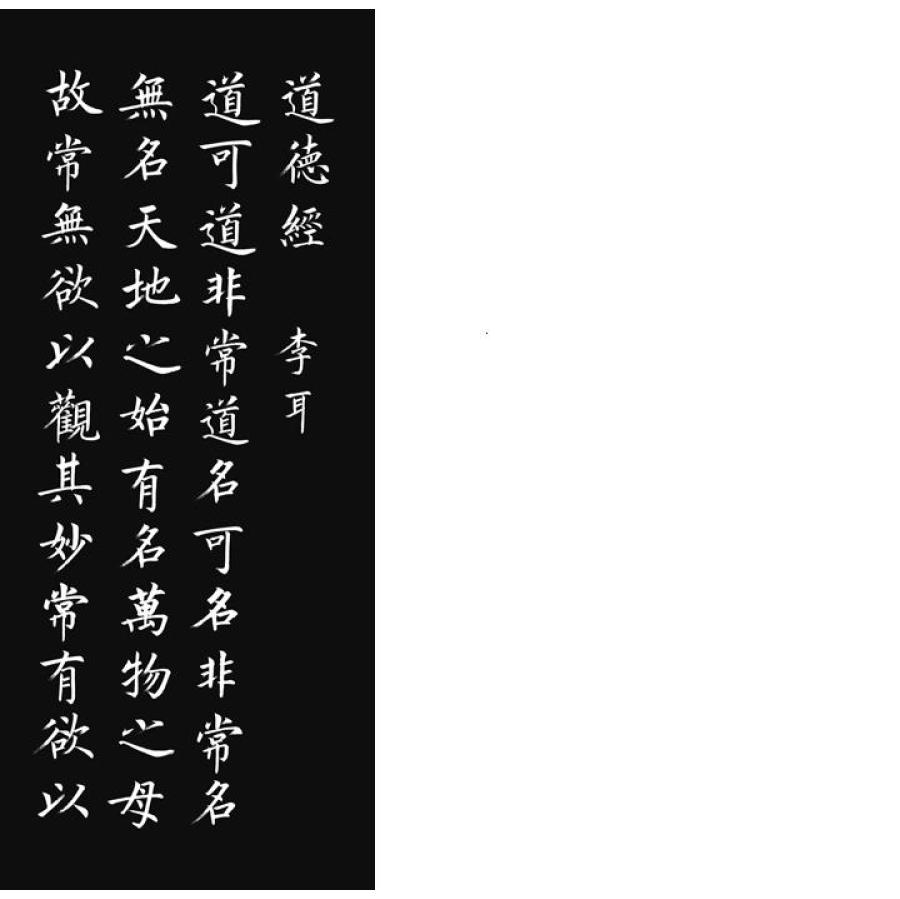 道德經 李耳
道可道非常道名可名非常名
無名天地之始有名萬物之母
故常無欲以觀其妙常有欲以